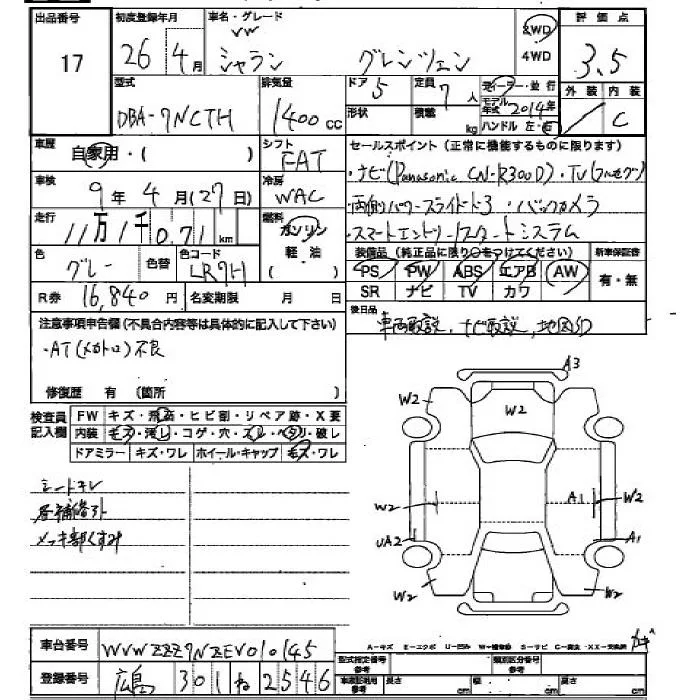 出品番号 初度登録年月 車名・グレード 評価点
17 26年4月 VW シャラン グレンツェン 2WD 4WD 3.5
外装 内装 C
型式 排気量 ドア 5 定員 7人 ディーラー・並行
DBA-7NCTH 1400cc 形状 積載 kg モデル年式 2014年
ハンドル 左・右
車歴 自家用・( ) シフト FAT セールスポイント（正常に機能するものに限ります）
車検 9年4月(27日) 冷房 WAC ・ナビ(Panasonic CN-R300D)・TV(フルセグ)
・両側パワースライドドア・バックカメラ
走行 11万1千071km 燃料 ガソリン 軽・油 ・スマートエントリー/スタートシステム
色 グレー 色替 色コード LR7H 装備品（純正品に限り○をつけてください） 新車保証書
PS PW ABS エアB AW 有・無
R券 16,840円 名変期限 月 日 SR ナビ TV カワ
注意事項申告欄（不具合内容等は具体的に記入して下さい） 後日品 車両取説、ナビ取説、地図SD
・AT(メカトロ)不良
修復歴 有（箇所 ）
検査員記入欄 FW キズ・飛石・ヒビ割・リペア跡・X要
内装 キズ・汚レ・コゲ・穴・スレ・ヘタリ・破レ
ドアミラー キズ・ワレ ホイール・キャップ キズ・ワレ
A3
W2 W2
W2 A1 W2
UA2 A1
W2 W2
シートキレ
メッキ部くすみ
車台番号 WVWZZZ7NZEV010145
A－キズ E－エクボ U－凹み
登録番号 広島 301 ね 2546 型式指定番号参考 類別区分番号参考
車庫証明用参考 長さ cm 幅 cm 高さ cm